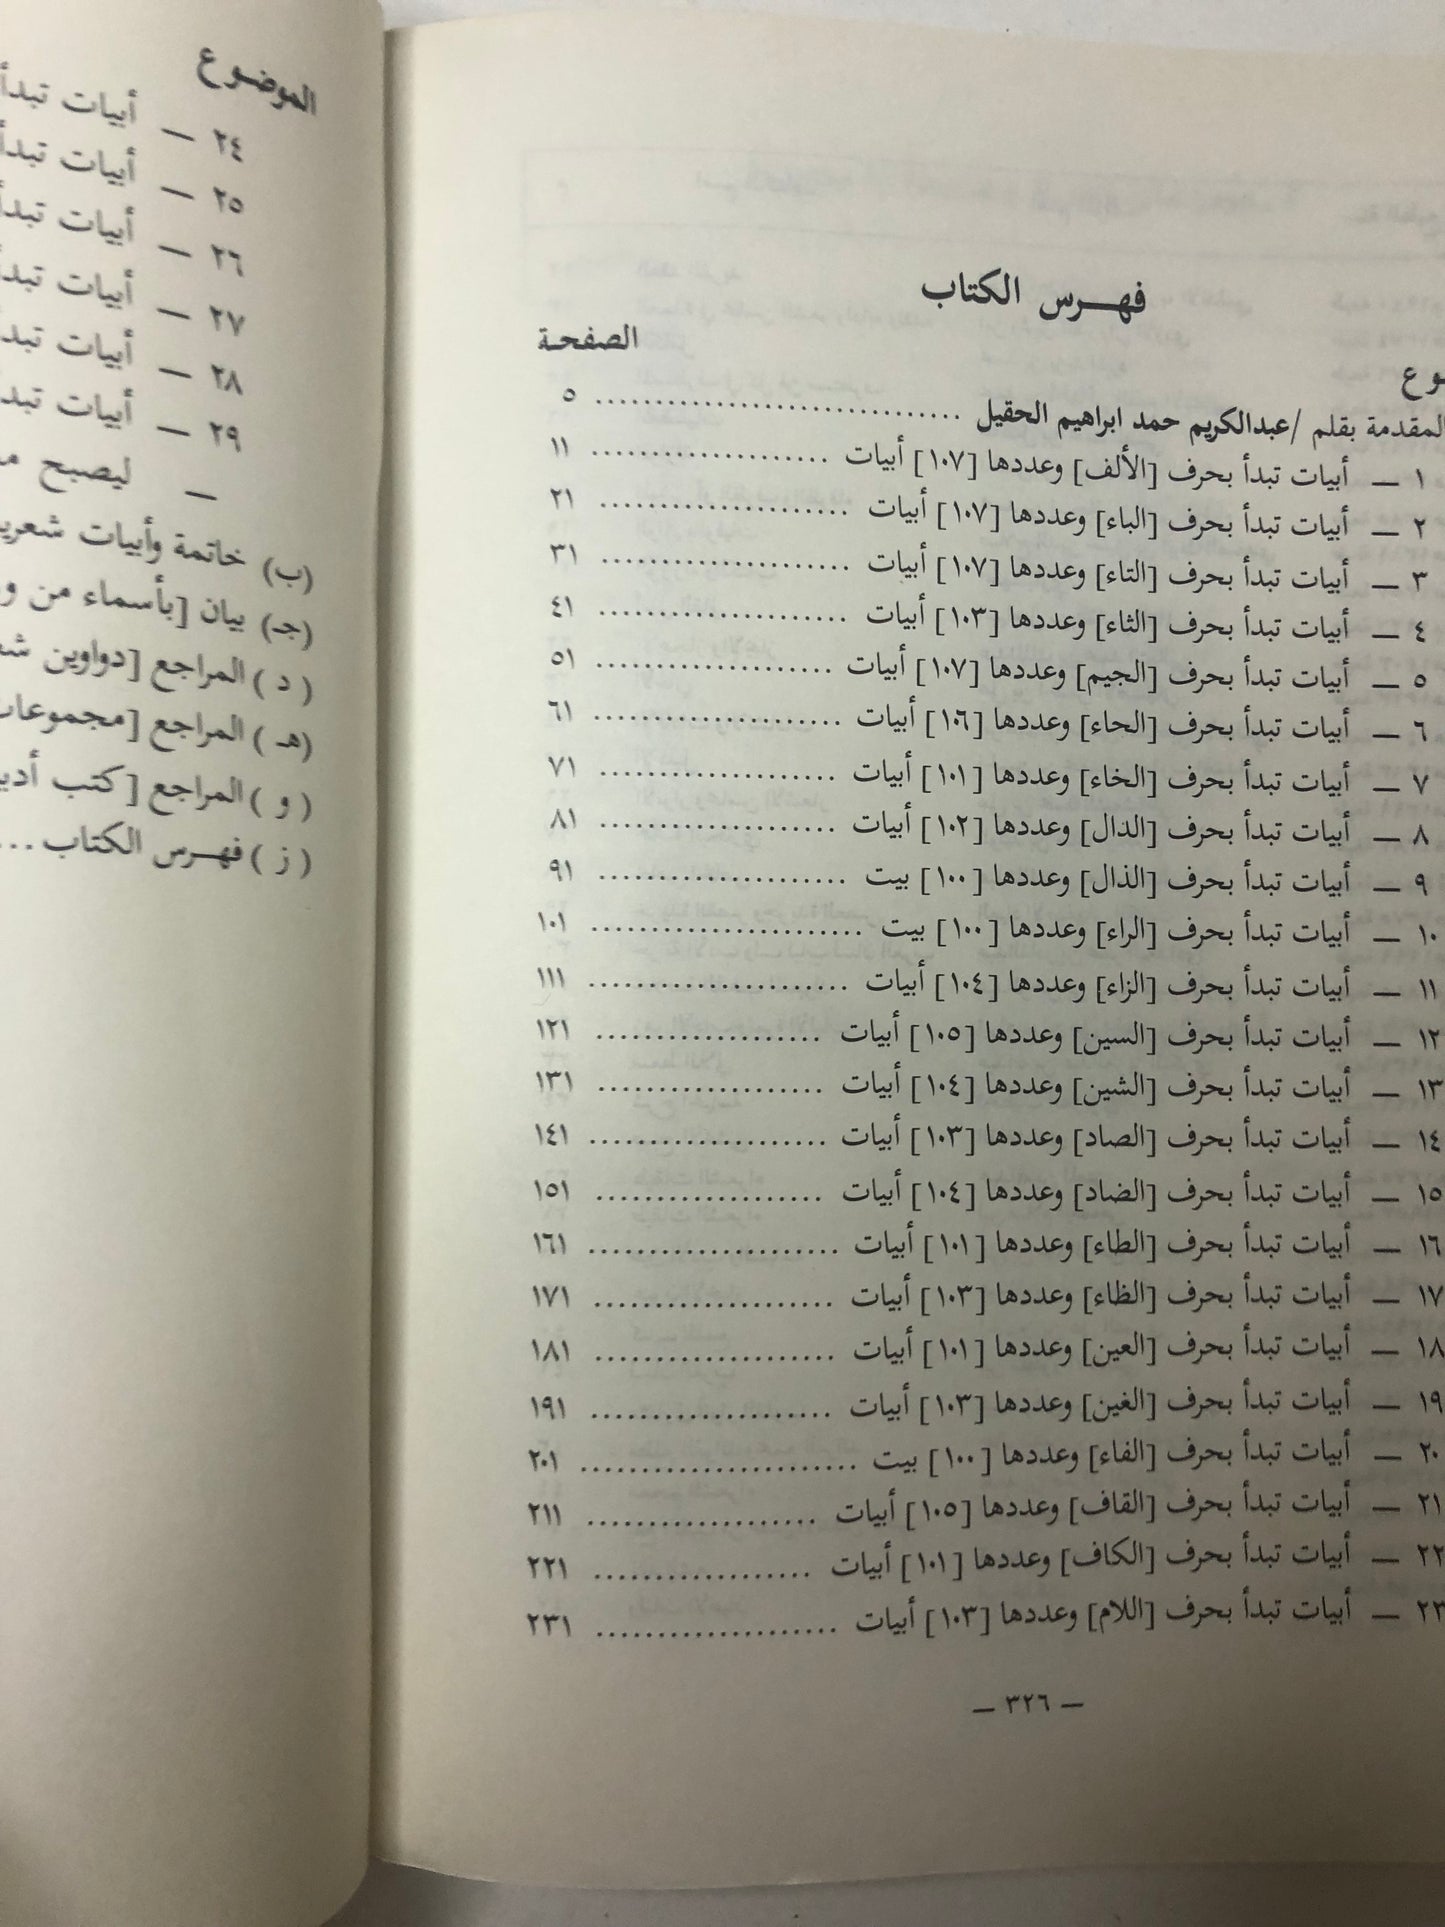 فهرس الكتاب
الصفحة
المقدمة بقلم / عبدالكريم حمد ابراهيم الحقيل ............................... ٥
١ — أبيات تبدأ بحرف [الألف] وعددها [١٠٧] أبيات .................... ١١
٢ — أبيات تبدأ بحرف [الباء] وعددها [١٠٧] أبيات .................... ٢١
٣ — أبيات تبدأ بحرف [التاء] وعددها [١٠٧] أبيات .................... ٣١
٤ — أبيات تبدأ بحرف [الثاء] وعددها [١٠٣] أبيات .................... ٤١
٥ — أبيات تبدأ بحرف [الجيم] وعددها [١٠٧] أبيات .................... ٥١
٦ — أبيات تبدأ بحرف [الحاء] وعددها [١٠٦] أبيات .................... ٦١
٧ — أبيات تبدأ بحرف [الخاء] وعددها [١٠١] أبيات .................... ٧١
٨ — أبيات تبدأ بحرف [الدال] وعددها [١٠٢] أبيات .................... ٨١
٩ — أبيات تبدأ بحرف [الذال] وعددها [١٠٠] بيت .................... ٩١
١٠ — أبيات تبدأ بحرف [الراء] وعددها [١٠٠] بيت .................... ١٠١
١١ — أبيات تبدأ بحرف [الزاء] وعددها [١٠٤] أبيات .................... ١١١
١٢ — أبيات تبدأ بحرف [السين] وعددها [١٠٥] أبيات .................... ١٢١
١٣ — أبيات تبدأ بحرف [الشين] وعددها [١٠٤] أبيات .................... ١٣١
١٤ — أبيات تبدأ بحرف [الصاد] وعددها [١٠٣] أبيات .................... ١٤١
١٥ — أبيات تبدأ بحرف [الضاد] وعددها [١٠٤] أبيات .................... ١٥١
١٦ — أبيات تبدأ بحرف [الطاء] وعددها [١٠١] أبيات .................... ١٦١
١٧ — أبيات تبدأ بحرف [الظاء] وعددها [١٠٣] أبيات .................... ١٧١
١٨ — أبيات تبدأ بحرف [العين] وعددها [١٠١] أبيات .................... ١٨١
١٩ — أبيات تبدأ بحرف [الغين] وعددها [١٠٣] أبيات .................... ١٩١
٢٠ — أبيات تبدأ بحرف [الفاء] وعددها [١٠٠] بيت .................... ٢٠١
٢١ — أبيات تبدأ بحرف [القاف] وعددها [١٠٥] أبيات .................... ٢١١
٢٢ — أبيات تبدأ بحرف [الكاف] وعددها [١٠١] أبيات .................... ٢٢١
٢٣ — أبيات تبدأ بحرف [اللام] وعددها [١٠٣] أبيات .................... ٢٣١
— ٣٢٦ —
الموضوع
٢٤ — أبيات تبدأ
٢٥ — أبيات تبدأ
٢٦ — أبيات تبدأ
٢٧ — أبيات تبدأ
٢٨ — أبيات تبدأ
٢٩ — أبيات تبدأ
— ليصبح
(ب) خاتمة وأبيات
(جـ) بيان [بأسماء من
( د ) المراجع [دواوين
(هـ ) المراجع [مجموعات
( و ) المراجع [كتب
( ز ) فهرس الكتاب ...